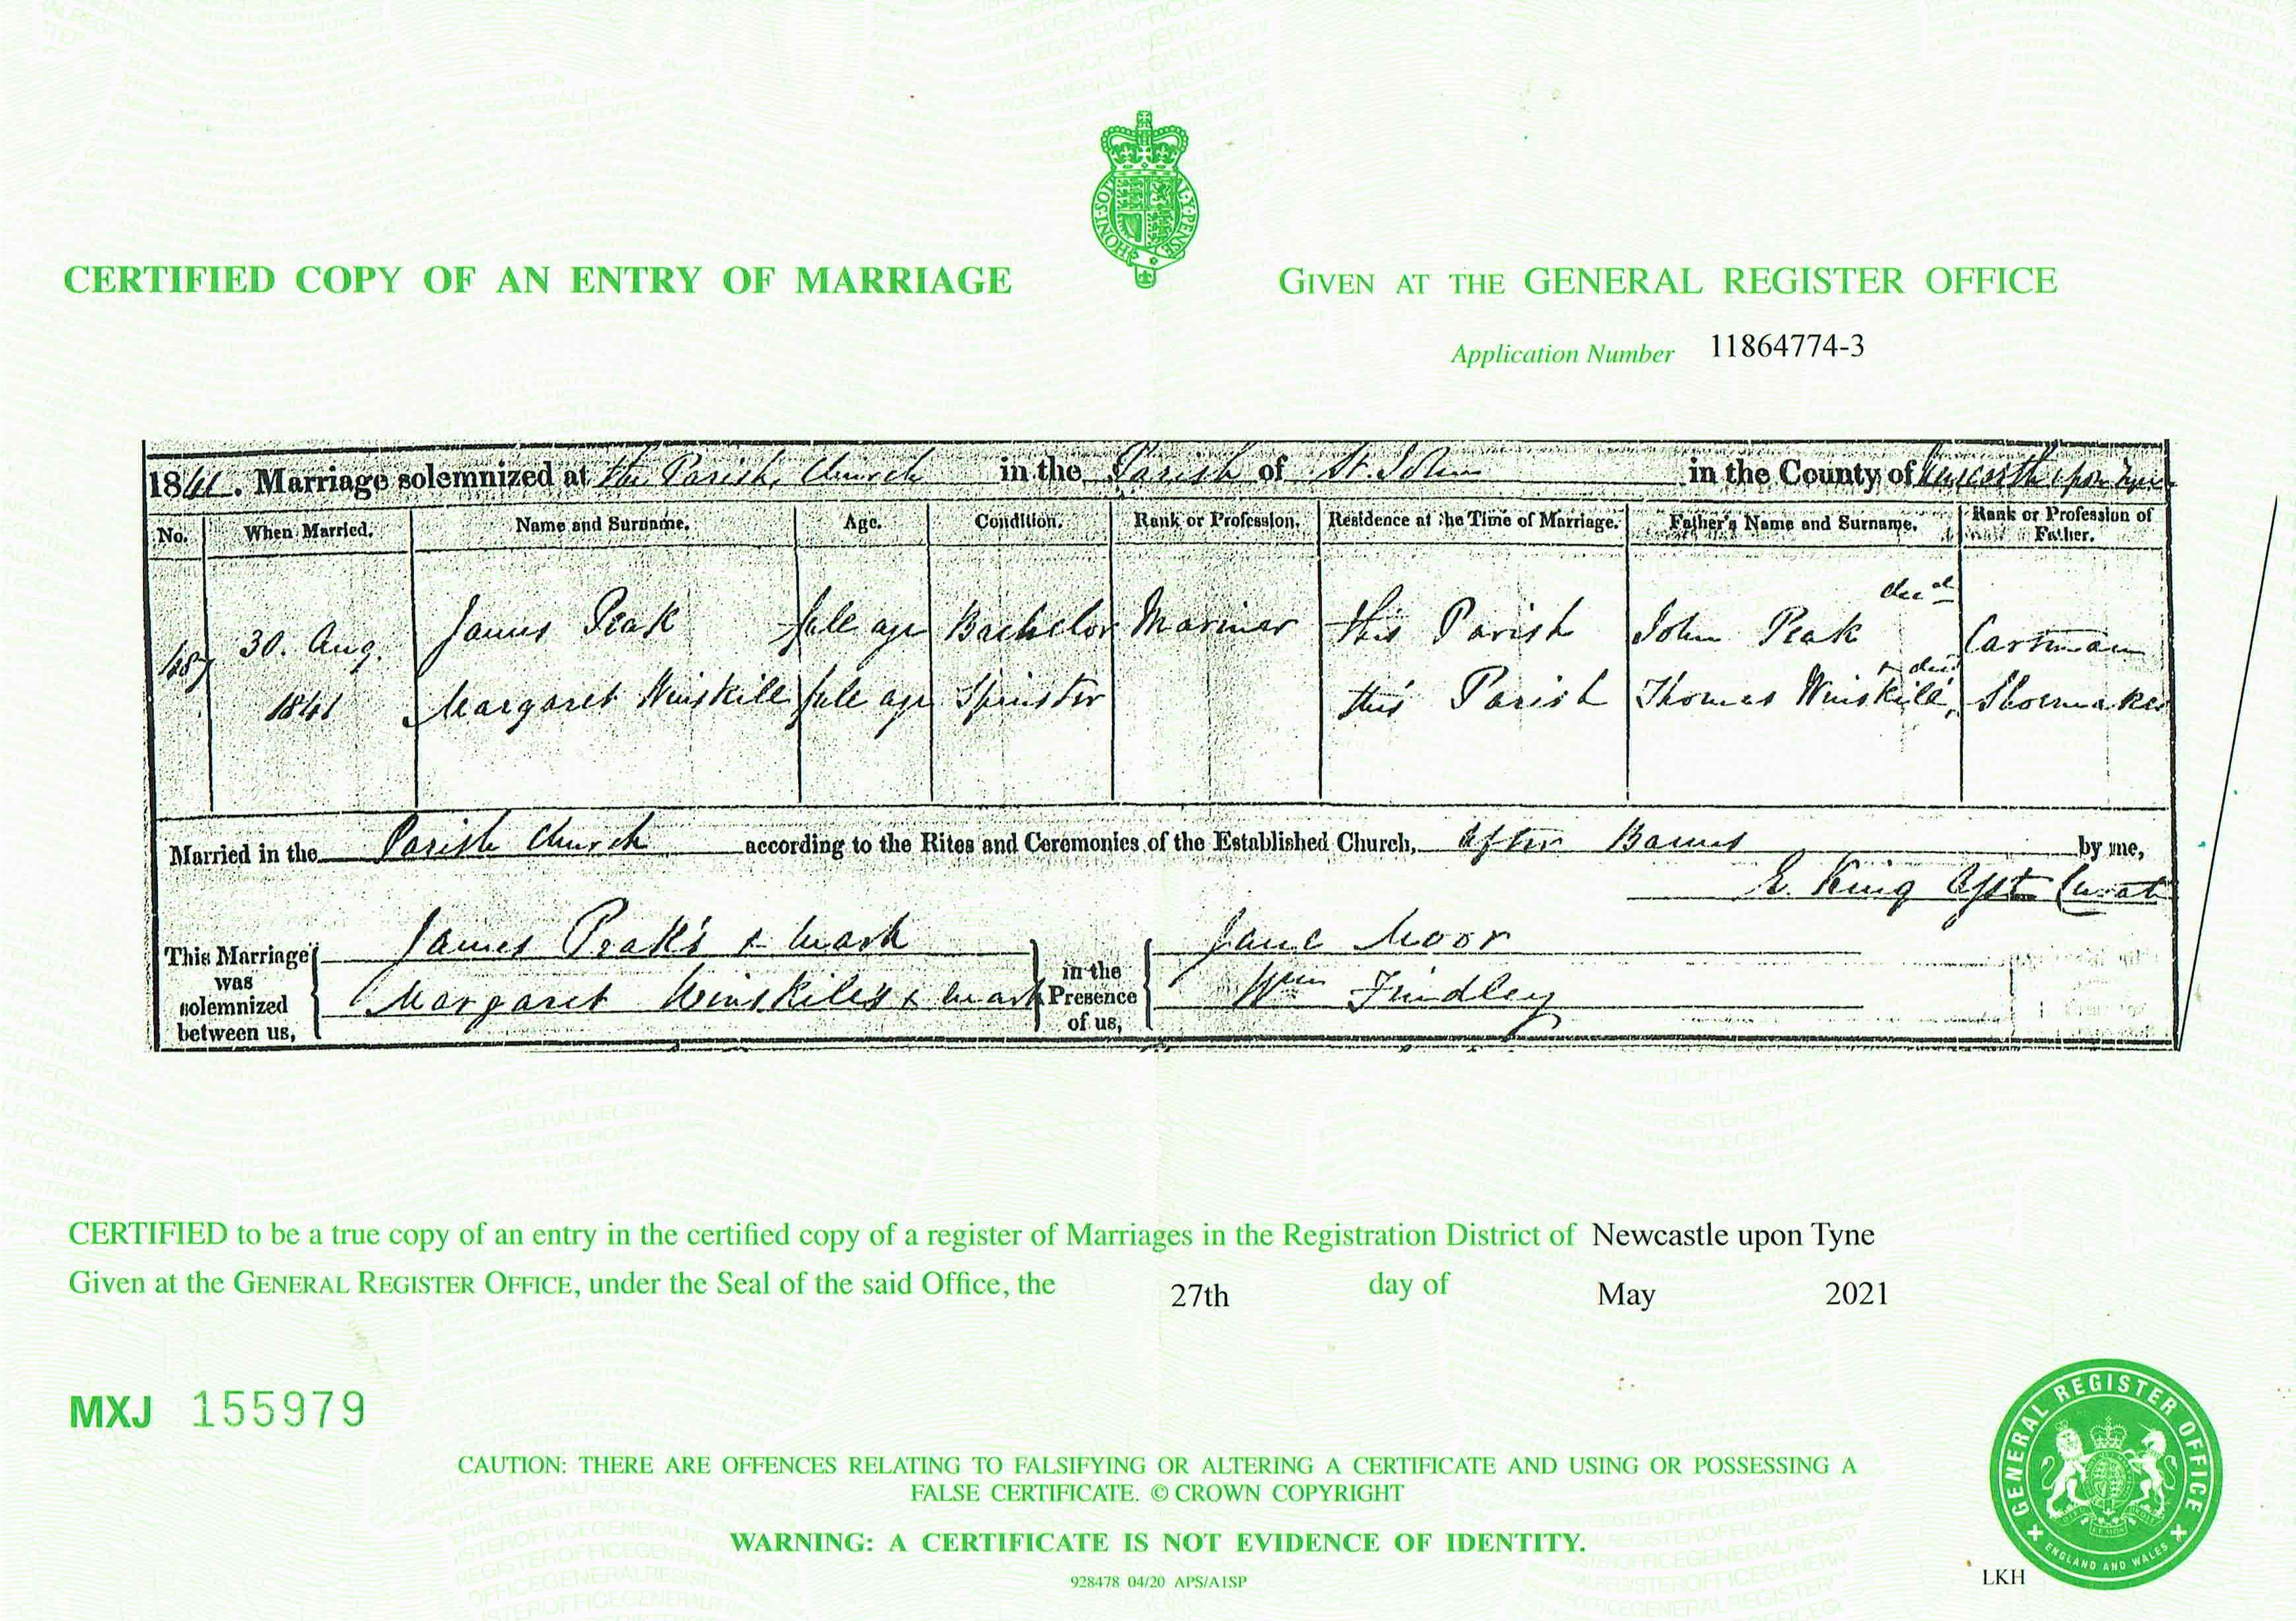 HONI·SOIT·Q AL·Y·PENSE
CERTIFIED COPY OF AN ENTRY OF MARRIAGE
GIVEN AT THE GENERAL REGISTER OFFICE
Application Number 11864774-3
1841. Marriage solemnized at the Parish Church in the Parish of St. John in the County of Newcastle upon Tyne
No. When Married. Name and Surname. Age. Condition. Rank or Profession. Residence at the Time of Marriage. Father's Name and Surname. Rank or Profession of Father.
487 30. Aug. James Peak full age Bachelor Mariner this Parish John Peak decd Cartman
1841 Margaret Winskill full age Spinster this Parish Thomas Winskill, decd Shoemaker
Married in the Parish Church according to the Rites and Ceremonies of the Established Church, after Banns by me,
E. King Asst Curate
This Marriage was solemnized between us,
James Peak's x mark
Margaret Winskill's x mark
in the Presence of us,
Jane Moor
Wm Findley
CERTIFIED to be a true copy of an entry in the certified copy of a register of Marriages in the Registration District of Newcastle upon Tyne
Given at the GENERAL REGISTER OFFICE, under the Seal of the said Office, the 27th day of May 2021
MXJ 155979
CAUTION: THERE ARE OFFENCES RELATING TO FALSIFYING OR ALTERING A CERTIFICATE AND USING OR POSSESSING A
FALSE CERTIFICATE. © CROWN COPYRIGHT
WARNING: A CERTIFICATE IS NOT EVIDENCE OF IDENTITY.
928478 04/20 APS/A1SP
LKH
GENERAL REGISTER OFFICE
ENGLAND AND WALES